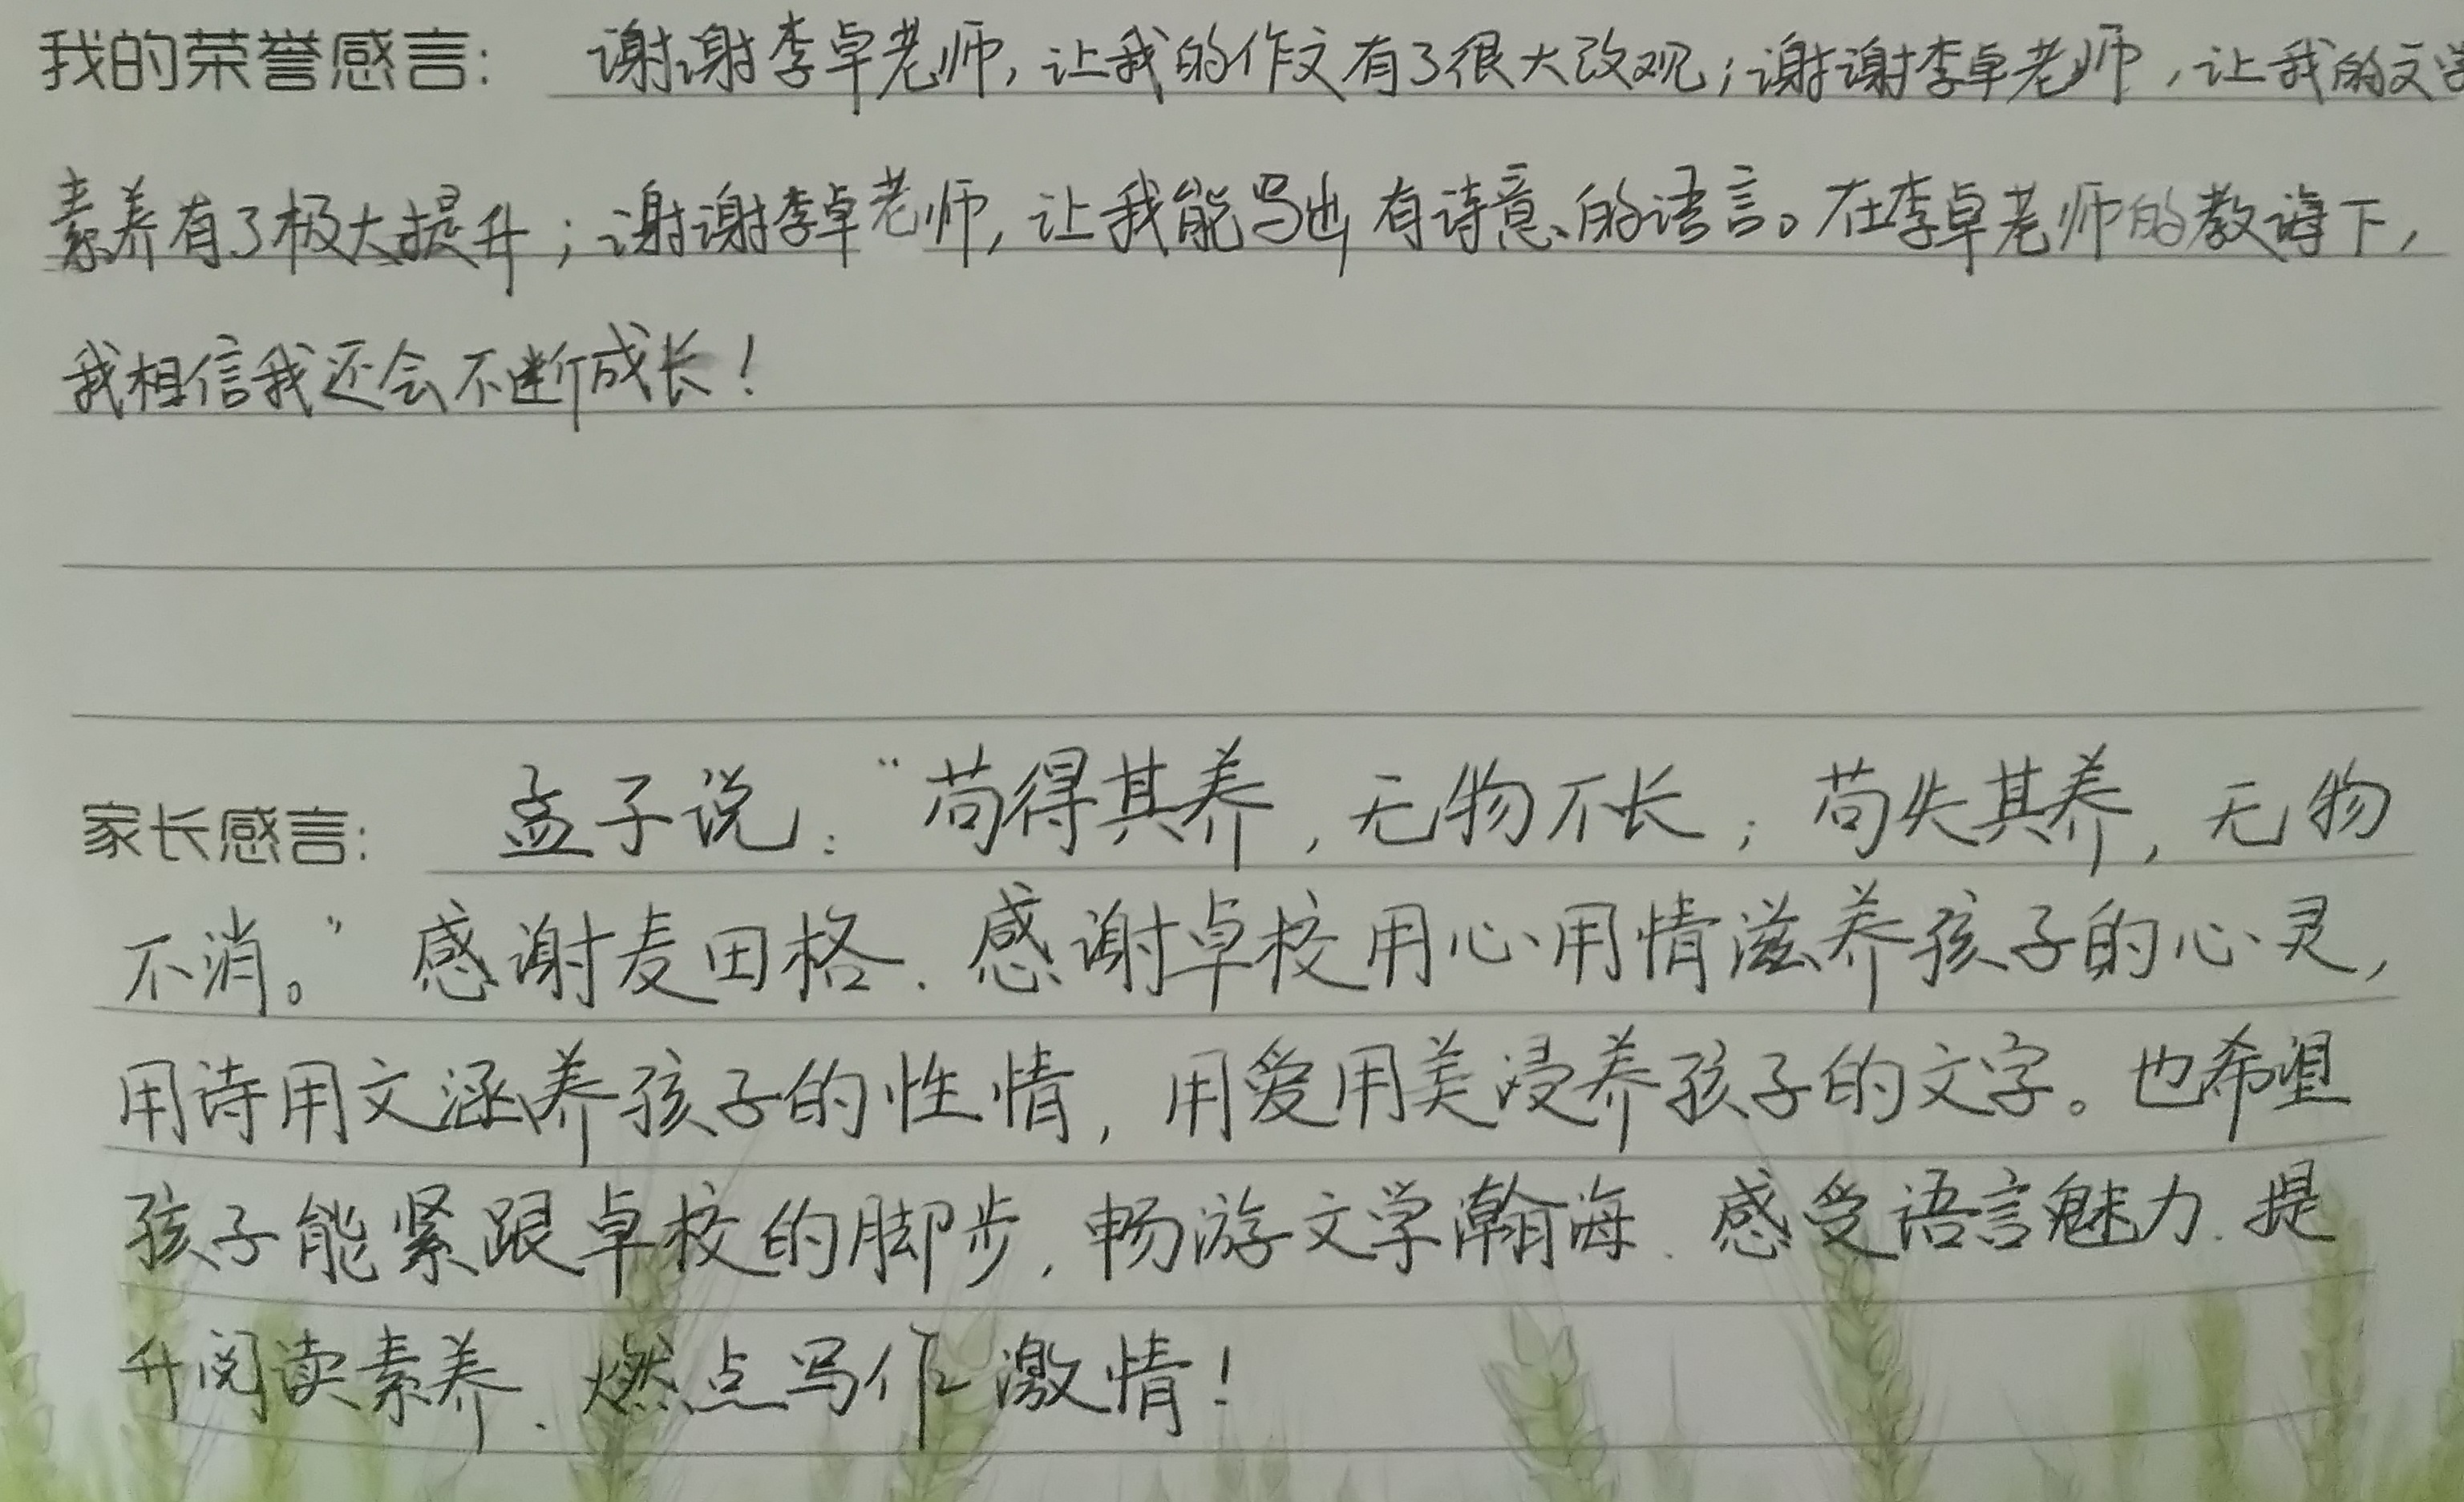 我的荣誉感言: 谢谢李卓老师,让我的作文有了很大改观;谢谢李卓老师,让我的文学
素养有了极大提升;谢谢李卓老师,让我能写出有诗意的语言。在李卓老师的教诲下,
我相信我还会不断成长!
家长感言: 孟子说:“苟得其养,无物不长;苟失其养,无物
不消。”感谢麦田格、感谢卓校用心用情滋养孩子的心灵,
用诗用文涵养孩子的性情,用爱用美浸养孩子的文字。也希望
孩子能紧跟卓校的脚步,畅游文学瀚海、感受语言魅力、提
升阅读素养、燃点写作激情!